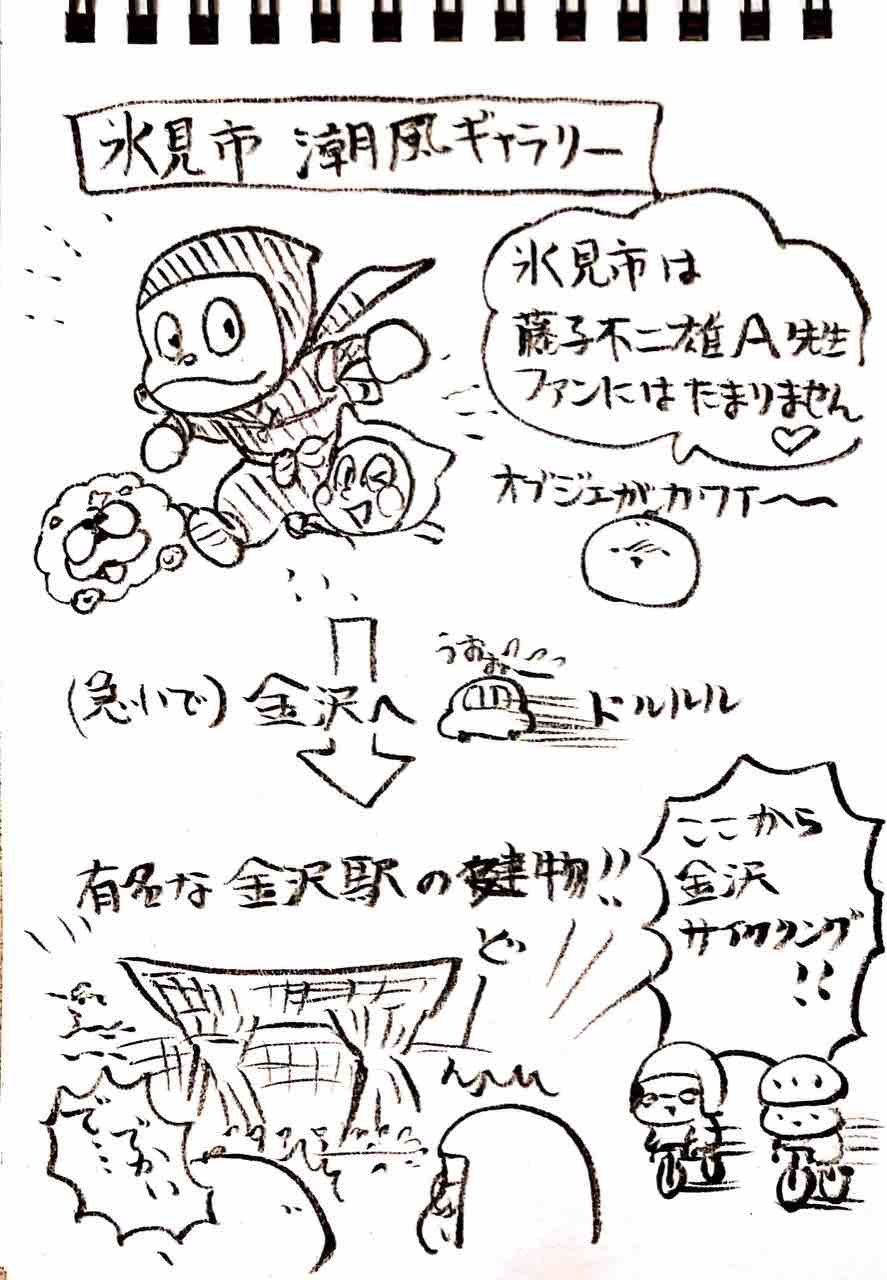 氷見市 潮風ギャラリー
氷見市は
藤子不二雄A先生
ファンにはたまりません
♡
オブジェがカワイ〜〜
うおお
(急いで)金沢へ
ドルルル
有名な金沢駅の建物!!
ここから
金沢
サイクリング
!!
ど
で…でかい